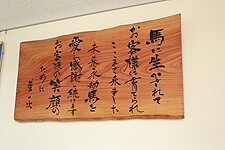 馬に生かされて
お客様に育てられ
ここまで来ました
未来永劫馬と
愛と感謝を続けます
お客様の笑顔の
ために